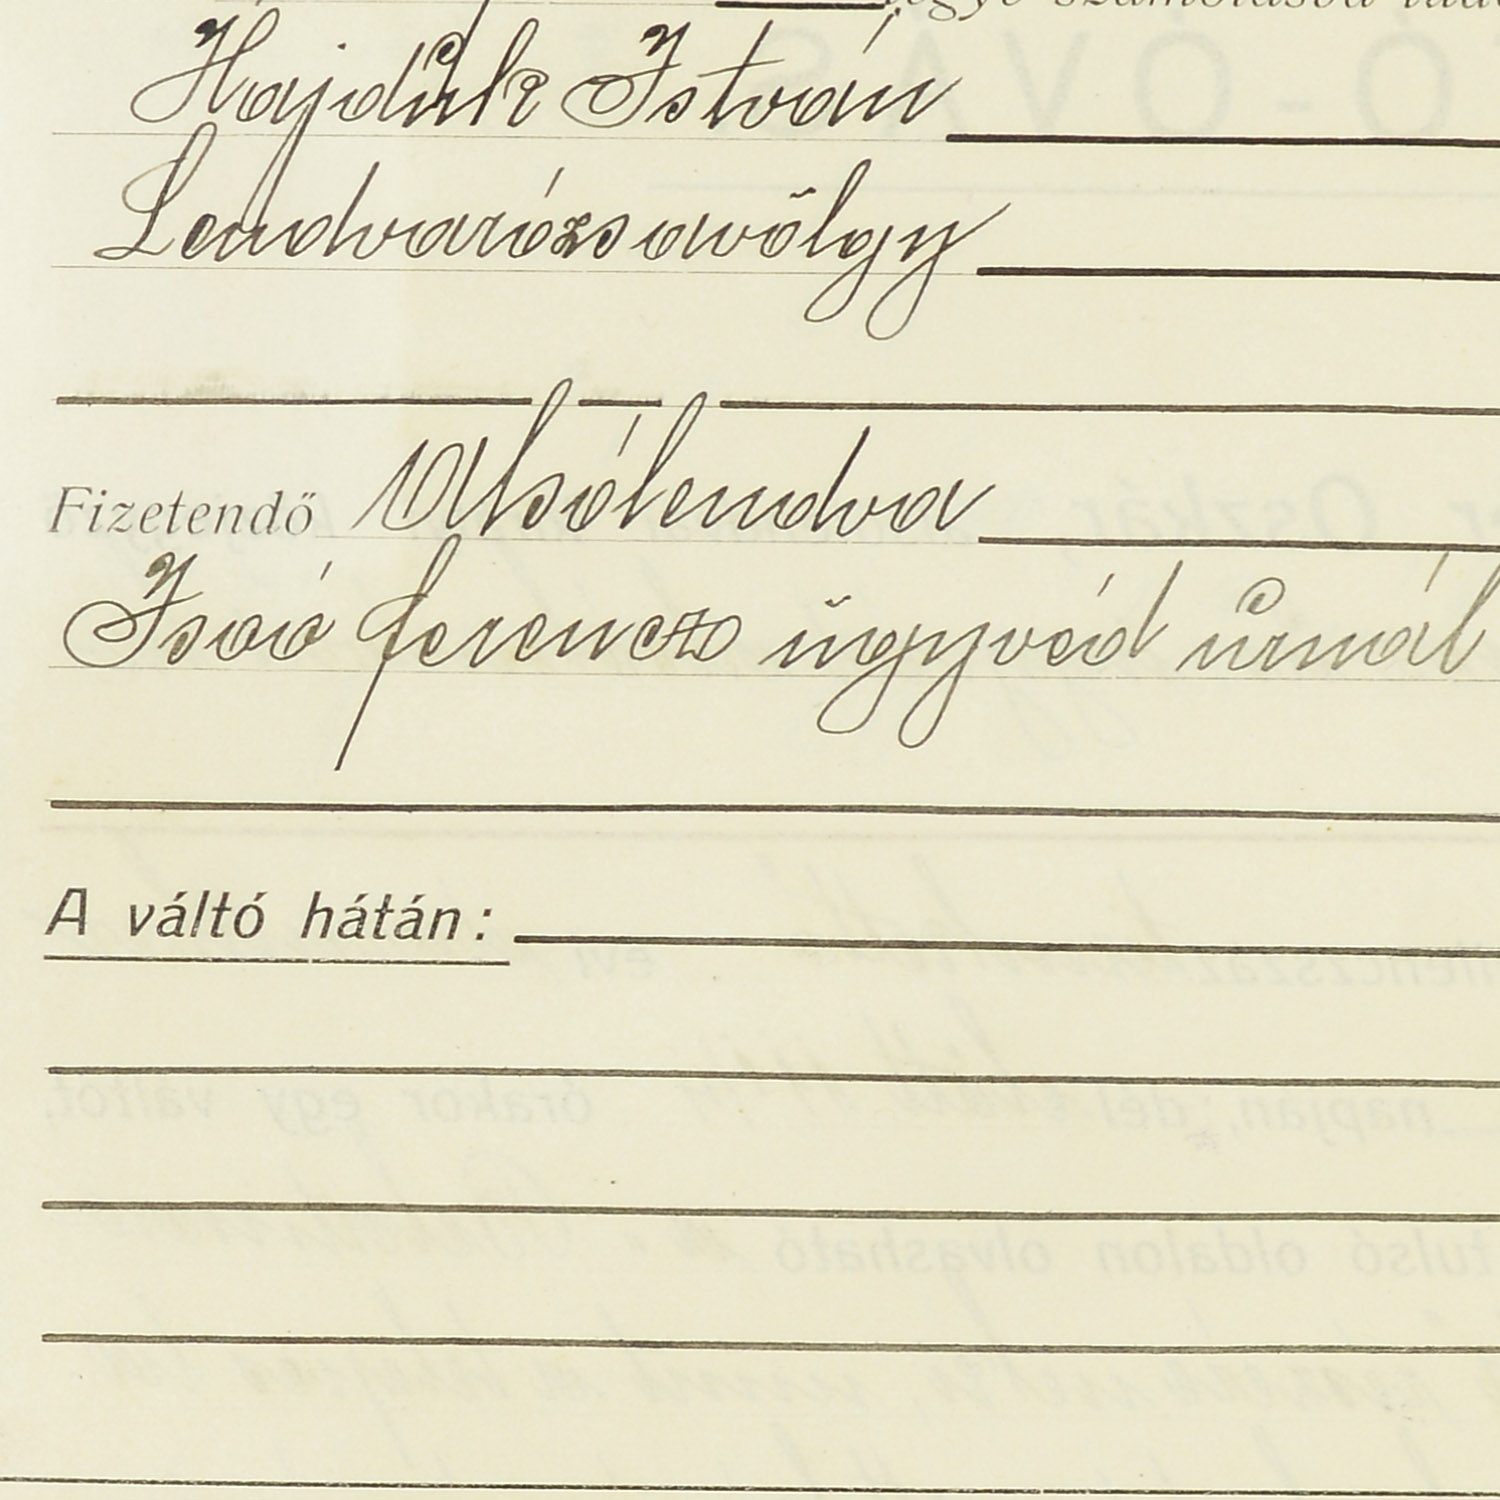 számolásba
Hajduk István
Lendvarózsavölgy
Fizetendő Alsólendva
Isoó ferencz ügyvéd úrnál
A váltó hátán: